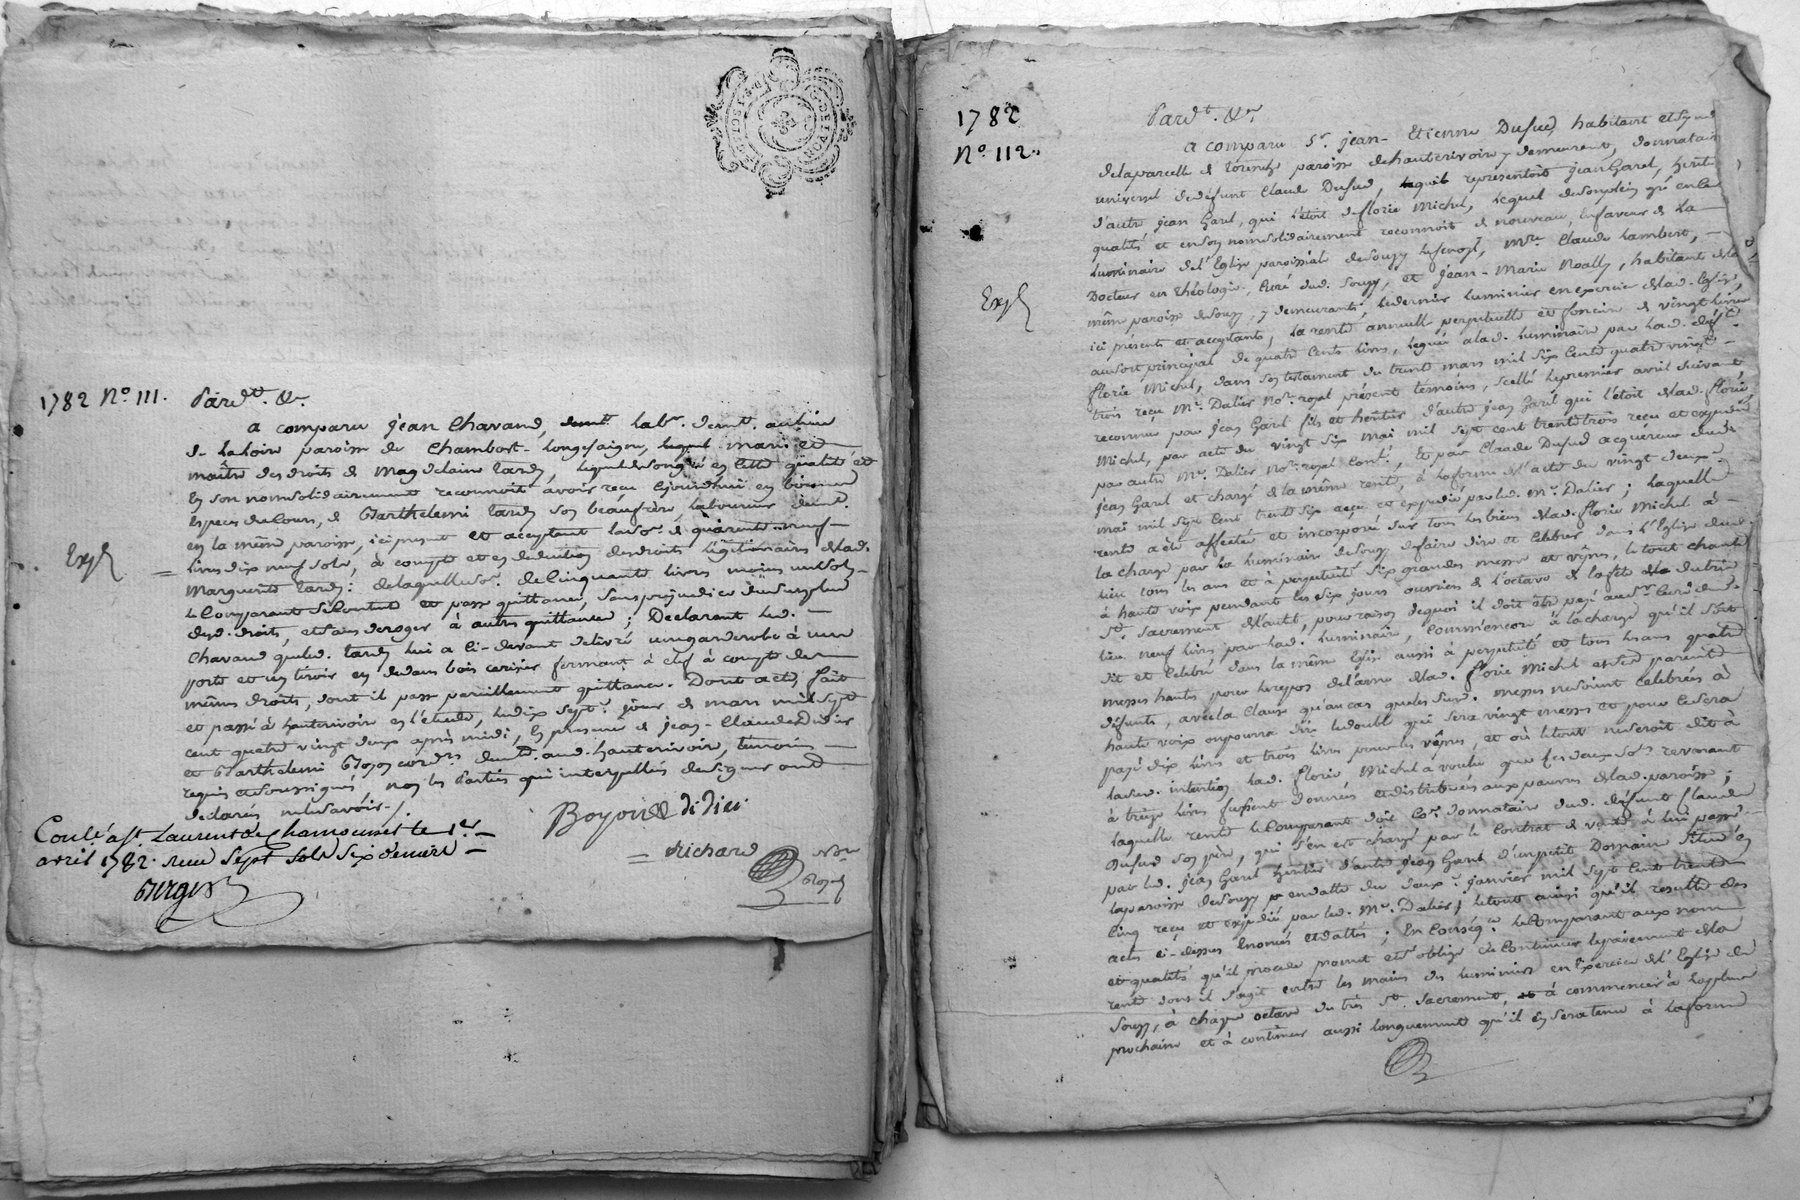 1782 N.° 111.
Pard.t &.r
a comparu jean Chavand, lab.r dem.t au lieu
de la loire paroisse de Chambost-Longesaigne, mari et
maître des droits de Magdelaine tardy, lequel de son gré en cette qualité et
en son nom solidairement reconnoît avoir reçu ejourdhui en bonnes
especes de cours, de Barthelemi tardy son beaufrère, laboureur dem.t
en la même paroisse, ici present et acceptant la so.e de quarante neuf
livres dix neuf sols, à compte et en deduction des droits légitimaires de lad.
Marguerite tardy: de laquelle so.e de cinquante livres moins un sol
le Comparant se contente et passe quittance, sans prejudice du surplus
desd. droits, et sans deroger à autres quittances; Declarant led.
Chavand que led. tardy lui a ci-devant delivré une garderobe à une
porte et un tiroir en dedans bois cerisier fermant à clef à compte des
mêmes droits, dont il passe pareillement quittance. Dont acte, fait
et passé à hauterivoire en l'étude, le dix sept.e jour de mars mil sept
cent quatre vingt deux après midi, en presence de jean-Claude Didier
et Barthelemi Boyon cord.rs dem.t aud. hauterivoire, témoins
requis et soussignés, non les parties qui interpellées de signer ont
declarés ne le savoir./.
Exp.é
Boyon didier
Richard N.re
Royal
Conlé. a S.t Laurent de Chamousset le 1.er
avril 1782. reçu sept sols six deniers
1782
N.° 112.
Pard.t &.r
a comparu S.r jean-Etienne Dufud, habitant et
de la parcelle de paroisse de hauterivoire y demeurant, donnataire
universel de défunt Claude Dufud, lequel représentoit jean Garel, herit.
d'autre jean Garel, qui l'étoit de florie Michel, lequel de son plein gré en lad.
qualité et en son nom solidairement reconnoît de nouveau, en faveur de la
luminaire de l'Eglise paroissiale de Souzy M.re Claude Lambert,
Docteur en théologie, Curé dud. Souzy, et jean-Marie Noally, habitant de la
même paroisse de Souzy, y demeurants, le dernier luminier en exercice de lad. Eglise,
ici présents et acceptants, la rente annuelle perpetuelle et fonciere de vingt livres
au sort principal de quatre cents livres, leguée à lad. luminaire par lad. déf.te
florie Michel, dans son testament du trente mars mil six cents quatre vingt
trois reçu M.e Dalier No.re royal présent temoins, scellé le premier avril suivant,
reconnue par jean Garel fils et heritier d'autre jean Garel qui l'étoit de lad. florie
Michel, par acte du vingt six mai mil sept cent trente trois reçu et expedié
par autre M.e Dalier No.re royal et par Claude Dufud acquéreur dud.
jean Garel et chargé de la même rente, à la forme de l'acte du vingt deux
mai mil sept cent trente six reçu et expedié par led. M.e Dalier; laquelle
rente a été affectée et incorporée sur tous les biens de lad. florie Michel à
la charge par la luminaire de Souzy de faire dire et celebrer dans l'Eglise dud.
lieu tous les ans et à perpetuité six grandes messes et vêpres, le tout chanté
à haute voix pendant les six jours ouvriers de l'octave de la fête du très
S.t Sacrement de l'autel, pour raison de quoi il doit être payé aus.r Curé dud.
lieu neuf livres par lad. luminaire, comm'encore à la charge qu'il soit
dit et celebré dans la même Eglise aussi à perpetuité et tous les ans quatre
messes hautes pour le repos de l'ame de lad. florie Michel et ses parents
défunts, avec la clause qu'au cas que lesd. messes ne soient celebrées à
haute voix on pourra dire le double qui sera vingt messes et pour ce sera
payé dix livres et trois livres pour les vêpres, et où le tout ne seroit dit à
lad. intention lad. florie Michel a voulu que revenant
à treize livres fussent donnés et distribués aux pauvres de lad. paroisse;
laquelle rente le Comparant doit co.e donnataire dud. défunt Claude
Dufud son père, qui s'en est chargé par le Contrat de vente à lui passé
par led. jean Garel heritier d'autre jean Garel d'un petit Domaine situé en
la paroisse de Souzy en datte du deux.e janvier mil sept cent trente
cinq reçu et expedié par led. M.e Dalier, le tout ainsi qu'il resulte des
actes ci-dessus énoncés et dattés; En conséq.ce le Comparant aux noms
et qualités qu'il procède promet et s'oblige de continuer le paiement de la
rente dont il s'agit entre les mains des luminiers en exercice de l'Eglise de
Souzy, à chaque octave du très S.t Sacrement, à commencer à la plus
prochaine et à continuer aussi longuement qu'il en sera tenu à la forme
Exp.é